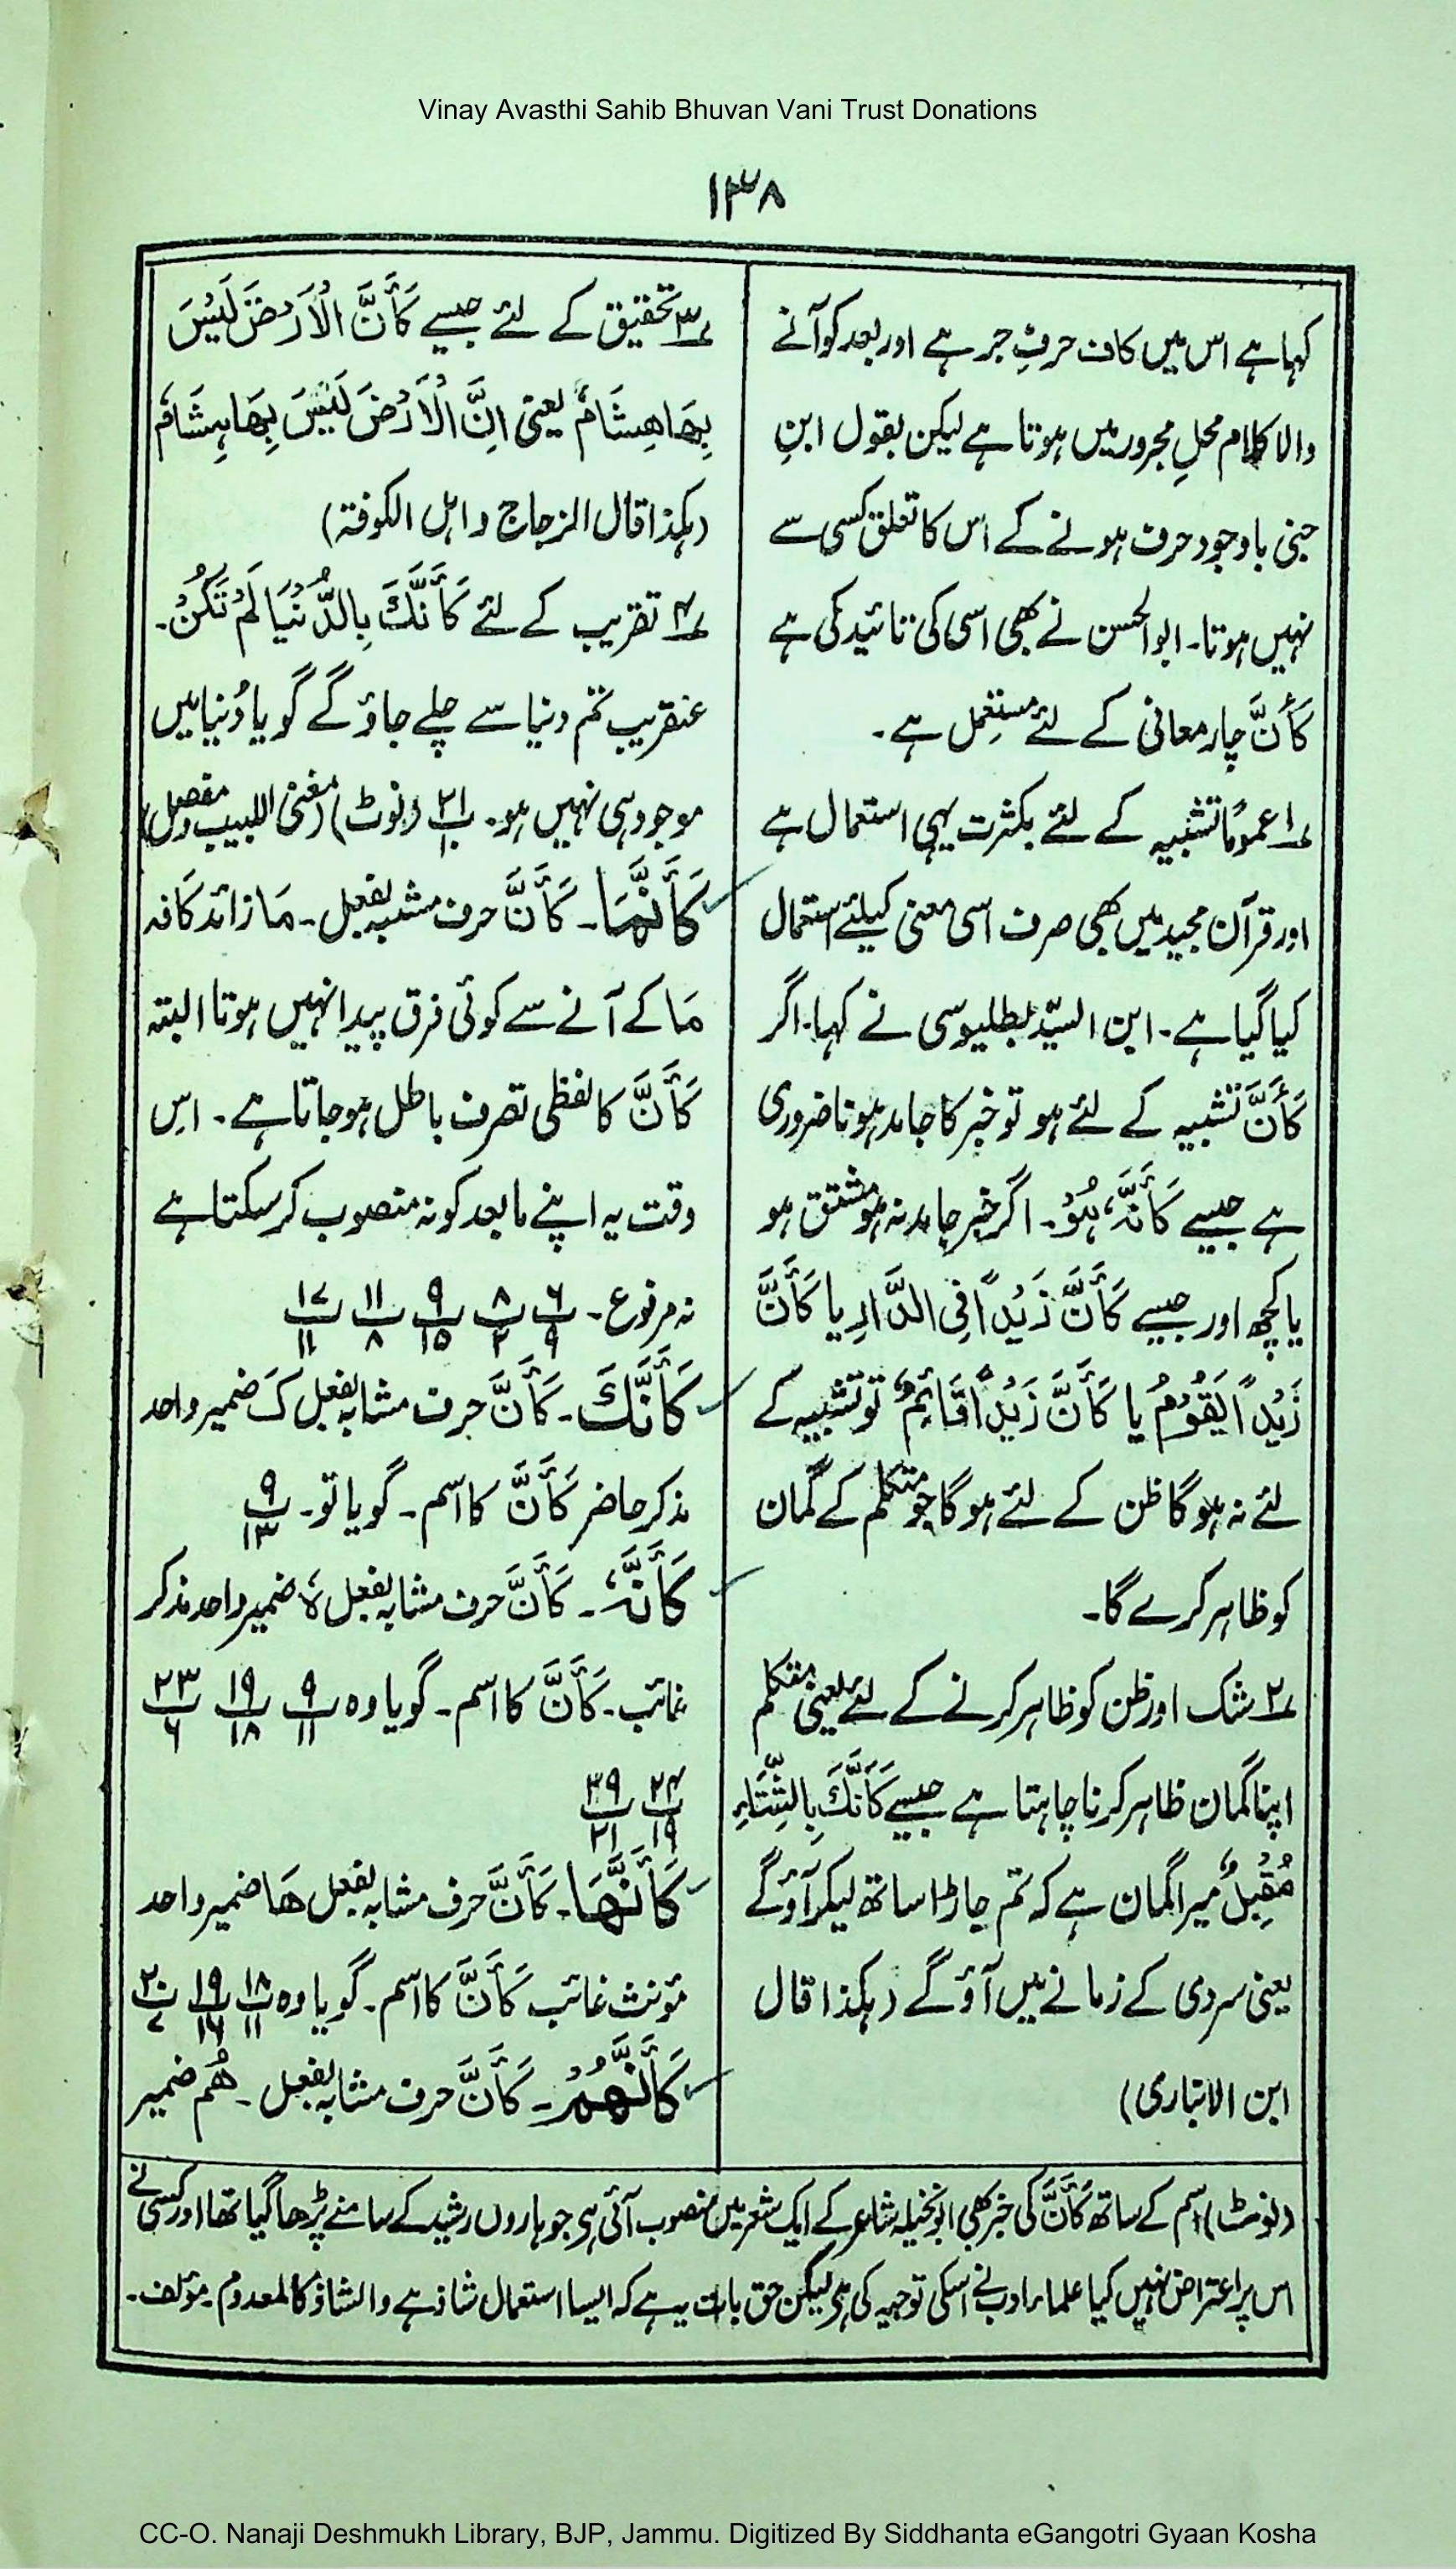 Vinay Avasthi Sahib Bhuvan Vani Trust Donations
۱۳۸
کہا ہے اس میں کاف حرفِ جر ہے اور بعد کو آنے
والا کلام محلِ مجرور میں ہوتا ہے لیکن بقول ابنِ
جنی باوجود حرف ہونے کے اس کا تعلق کسی سے
نہیں ہوتا۔ ابوالحسن نے بھی اسی کی تائید کی ہے
كَأَنَّ چار معانی کے لئے مستعمل ہے۔
۱؎ عموماً تشبیہ کے لئے بکثرت یہی استعمال ہے
اور قرآن مجید میں بھی صرف اسی معنی کیلئے استعمال
کیا گیا ہے۔ ابن السیّد بطلیوسی نے کہا۔ اگر
كَأَنَّ تشبیہ کے لئے ہو تو خبر کا جامد ہونا ضروری
ہے جیسے كَأَنَّهٗ هُوَ۔ اگر خبر جامد نہ ہو مشتق ہو
یا کچھ اور جیسے كَأَنَّ زَيْدًا فِي الدَّارِ یا كَأَنَّ
زَيْدًا يَقُوْمُ یا كَأَنَّ زَيْدًا قَائِمٌ تو تشبیہ کے
لئے نہ ہوگا ظن کے لئے ہوگا جو متکلم کے گمان
کو ظاہر کرے گا۔
۲؎ شک اور ظن کو ظاہر کرنے کے لئے یعنی متکلم
اپنا گمان ظاہر کرنا چاہتا ہے جیسے كَأَنَّكَ بِالشِّتَاءِ
مُقْبِلٌ میرا گمان ہے کہ تم جاڑا ساتھ لیکر آؤ گے
یعنی سردی کے زمانے میں آؤ گے (ہکذا قال
ابن الانباری)
۳؎ تحقیق کے لئے جیسے كَأَنَّ الْاَرْضَ لَيْسَ
بِهَا هِشَامٌ یعنی اِنَّ الْاَرْضَ لَيْسَ بِهَا هِشَامٌ
(ہکذا قال الزجاج و اہل الکوفۃ)
۴؎ تقریب کے لئے كَأَنَّكَ بِالدُّنْيَا لَمْ تَكُنْ۔
عنقریب تم دنیا سے چلے جاؤ گے گویا دُنیا میں
موجود ہی نہیں ہو۔ ۲۱ (نوٹ) (مغنی اللبیب و مفصل)
كَأَنَّمَا۔ كَأَنَّ حرف مشبہ بفعل۔ مَا زائد کافہ
مَا کے آنے سے کوئی فرق پیدا نہیں ہوتا البتہ
كَأَنَّ کا لفظی تصرف باطل ہو جاتا ہے۔ اس
وقت یہ اپنے مابعد کو نہ منصوب کر سکتا ہے
نہ مرفوع۔ پ۶/۹ پ۸/۲ پ۹/۱۵ پ۱۱/۸ پ۱۷/۱۱
كَأَنَّكَ۔ كَأَنَّ حرف مشابہ بفعل كَ ضمیر واحد
مذکر حاضر كَأَنَّ کا اسم۔ گویا تو۔ پ۹/۱۳
كَأَنَّهٗ۔ كَأَنَّ حرف مشابہ بفعل هٗ ضمیر واحد مذکر
غائب۔ كَأَنَّ کا اسم۔ گویا وہ پ۹/۱۱ پ۱۹/۱۸ پ۲۳/۶
پ۲۴/۱۹ پ۳۹/۲۱
كَأَنَّهَا۔ كَأَنَّ حرف مشابہ بفعل هَا ضمیر واحد
مؤنث غائب كَأَنَّ کا اسم۔ گویا وہ پ۱۸/۱۱ پ۱۹/۱۶ پ۲۰/۷
كَأَنَّهُمْ۔ كَأَنَّ حرف مشابہ بفعل۔ هُم ضمیر
(نوٹ) اسم کے ساتھ كَأَنَّ کی خبر بھی ابونخیلہ شاعر کے ایک شعر میں منصوب آئی ہی جو ہارون رشید کے سامنے پڑھا گیا تھا اور کسی نے
اس پر اعتراض نہیں کیا علماء ادب نے اسکی توجیہ کی ہی لیکن حق بات یہ ہے کہ ایسا استعمال شاذ ہے والشاذ کالمعدوم۔ مؤلف۔
CC-O. Nanaji Deshmukh Library, BJP, Jammu. Digitized By Siddhanta eGangotri Gyaan Kosha